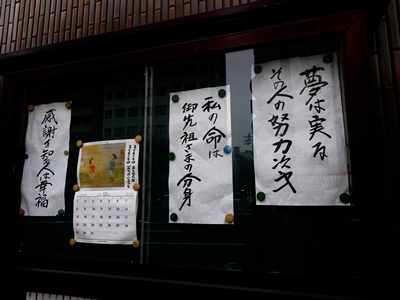 夢は実る
その人の努力次才
私の命は
御先祖さまの分身
感謝を知る人は幸福